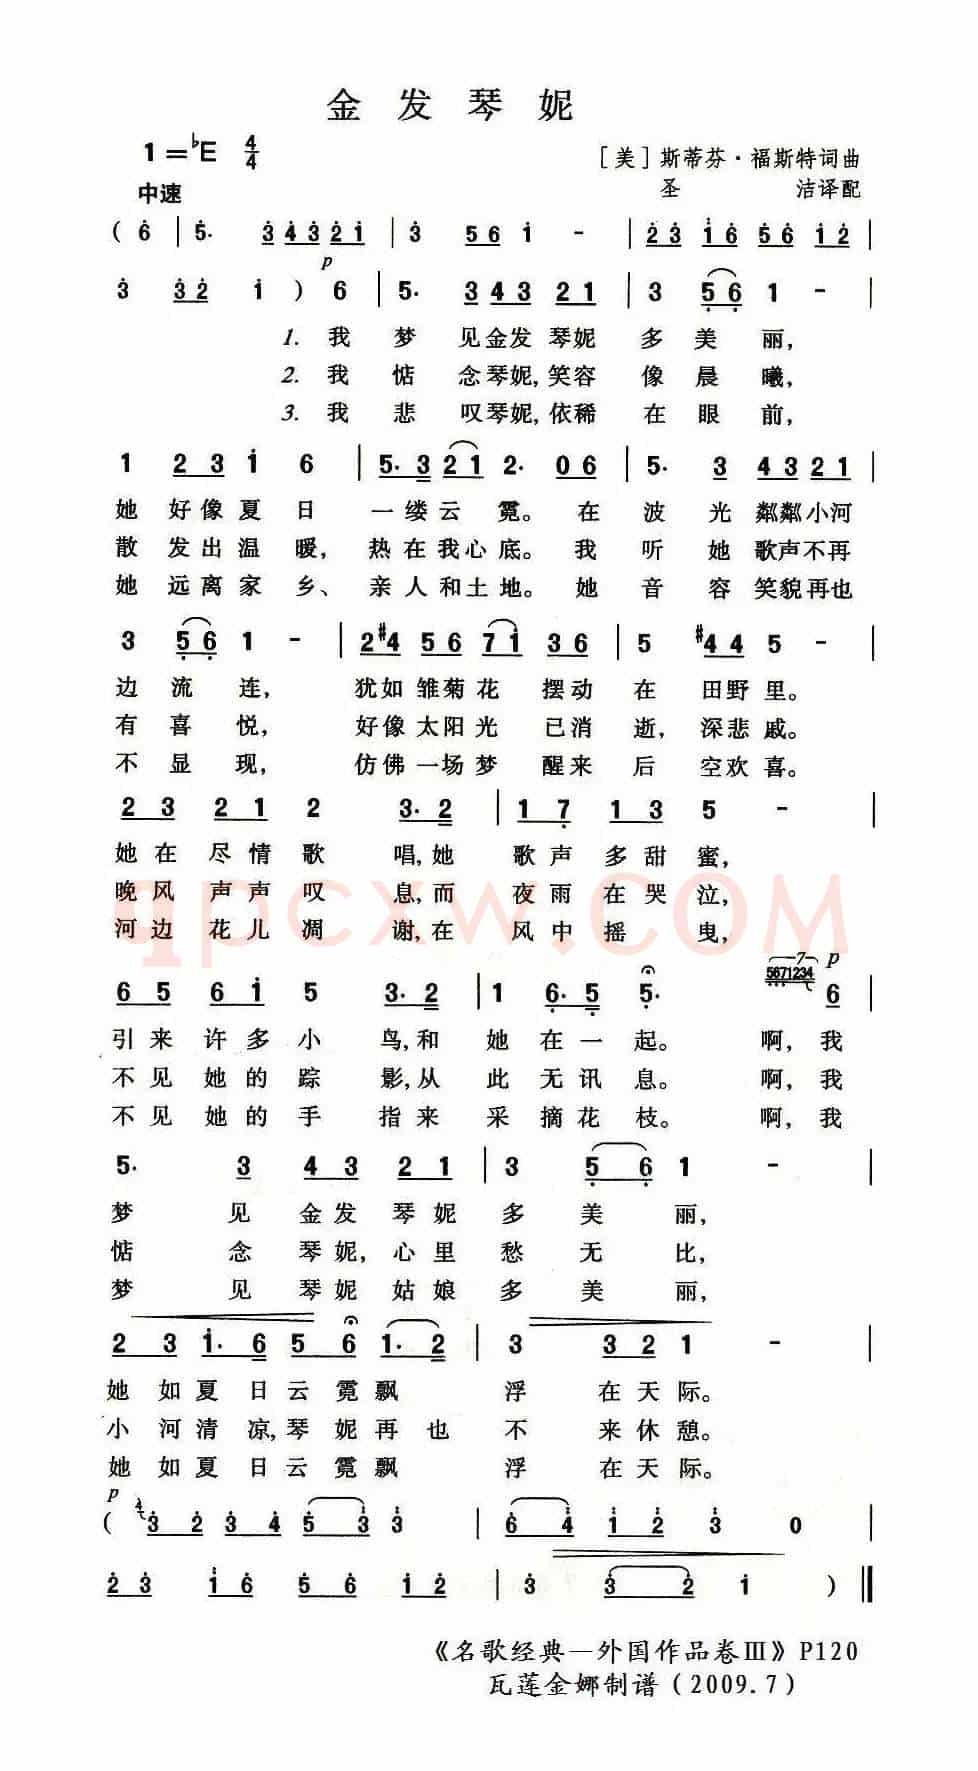 金发琴妮
1=♭E 4/4
[美]斯蒂芬·福斯特词曲
中速
圣 洁译配
( 6 | 5· 3 4 3 2 1 | 3 5 6 1 - | 2 3 1 6 5 6 1 2 |
p
3 3 2 1 ) 6 | 5· 3 4 3 2 1 | 3 5 6 1 - |
1. 我 梦 见金发 琴妮 多 美 丽,
2. 我 惦 念琴妮,笑容 像 晨 曦,
3. 我 悲 叹琴妮,依稀 在 眼 前,
1 2 3 1 6 | 5· 3 2 1 2· 0 6 | 5· 3 4 3 2 1 |
她 好像夏 日 一缕云 霓。 在 波 光 粼粼小河
散 发出温 暖, 热在我心底。 我 听 她 歌声不再
她 远离家 乡、 亲人和土地。 她 音 容 笑貌再也
3 5 6 1 - | 2 #4 5 6 7 1 3 6 | 5 #4 4 5 - |
边 流 连, 犹如雏菊花 摆动 在 田野里。
有 喜 悦, 好像太阳光 已消 逝, 深悲戚。
不 显 现, 仿佛一场梦 醒来 后 空欢喜。
2 3 2 1 2 3· 2 | 1 7 1 3 5 - |
她在 尽情歌 唱,她 歌声多甜蜜,
晚风 声声叹 息,而 夜雨在哭泣,
河边 花儿凋 谢,在 风中摇 曳,
qpcxw.COM
7
5671234 p
6 5 6 1 5 3· 2 | 1 6· 5 5· 6 |
引来 许多小 鸟,和 她 在一 起。 啊,我
不见 她的踪 影,从 此 无讯 息。 啊,我
不见 她的手 指来 采 摘花 枝。 啊,我
5· 3 4 3 2 1 | 3 5 6 1 - |
梦 见 金发 琴妮 多 美 丽,
惦 念 琴妮,心里 愁 无 比,
梦 见 琴妮 姑娘 多 美 丽,
2 3 1· 6 5 6 1· 2 | 3 3 2 1 - |
她 如夏 日云霓飘 浮 在天际。
小 河清 凉,琴妮再也 不 来休憩。
她 如夏 日云霓飘 浮 在天际。
p
( 4 3 2 3 4 5 3 3 | 6 4 1 2 3 0 |
2 3 1 6 5 6 1 2 | 3 3 2 1 ) ‖
《名歌经典—外国作品卷Ⅲ》P120
瓦莲金娜制谱(2009.7)